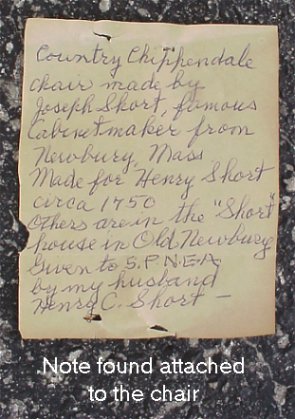 Country Chippendale
chair made by
Joseph Short, famous
Cabinetmaker from
Newbury, Mass
Made for Henry Short
circa 1750
Others are in the "Short"
house in Old Newbury
Given to S.P.N.E.A.
by my husband
Henry C. Short —
Note found attached
to the chair